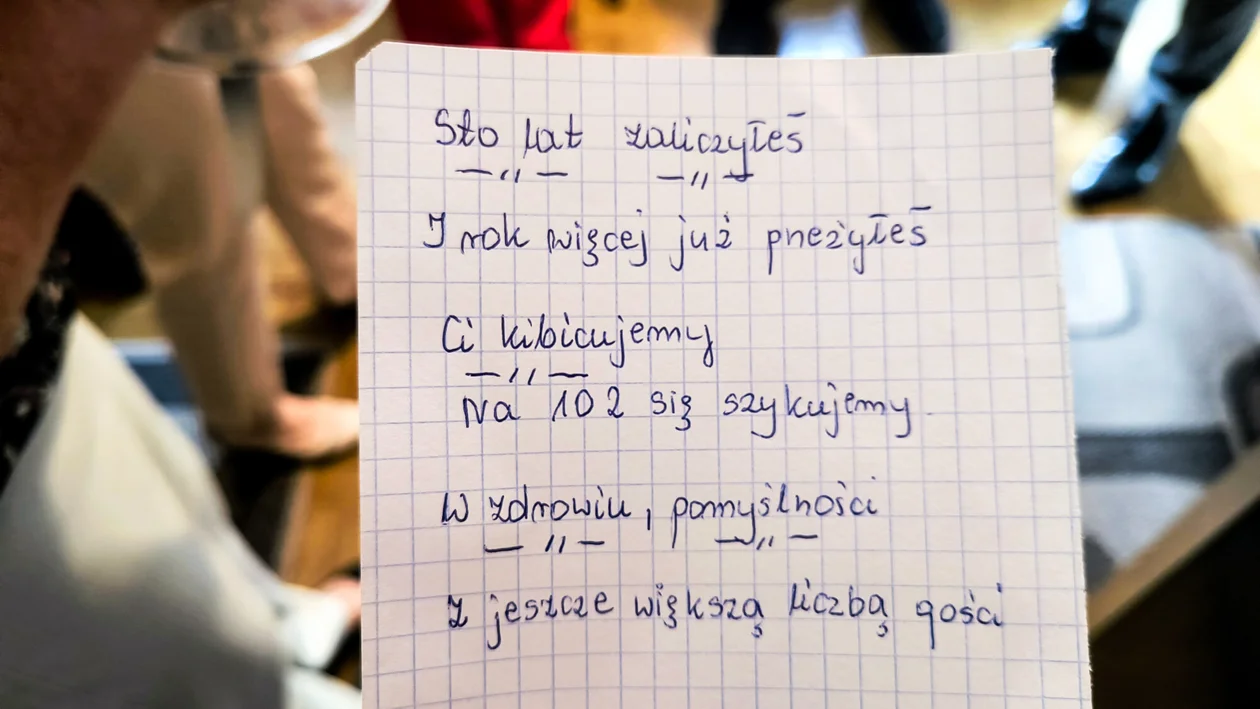 Sto lat zaliczyłeś
—〃— —〃—
I rok więcej już przeżyłeś
Ci kibicujemy
—〃—
Na 102 się szykujemy
W zdrowiu, pomyślności
—〃— —〃—
Z jeszcze większą liczbą gości